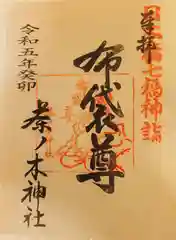 奉拝
七福神詣
布袋尊
令和五年癸卯
茶ノ木神社